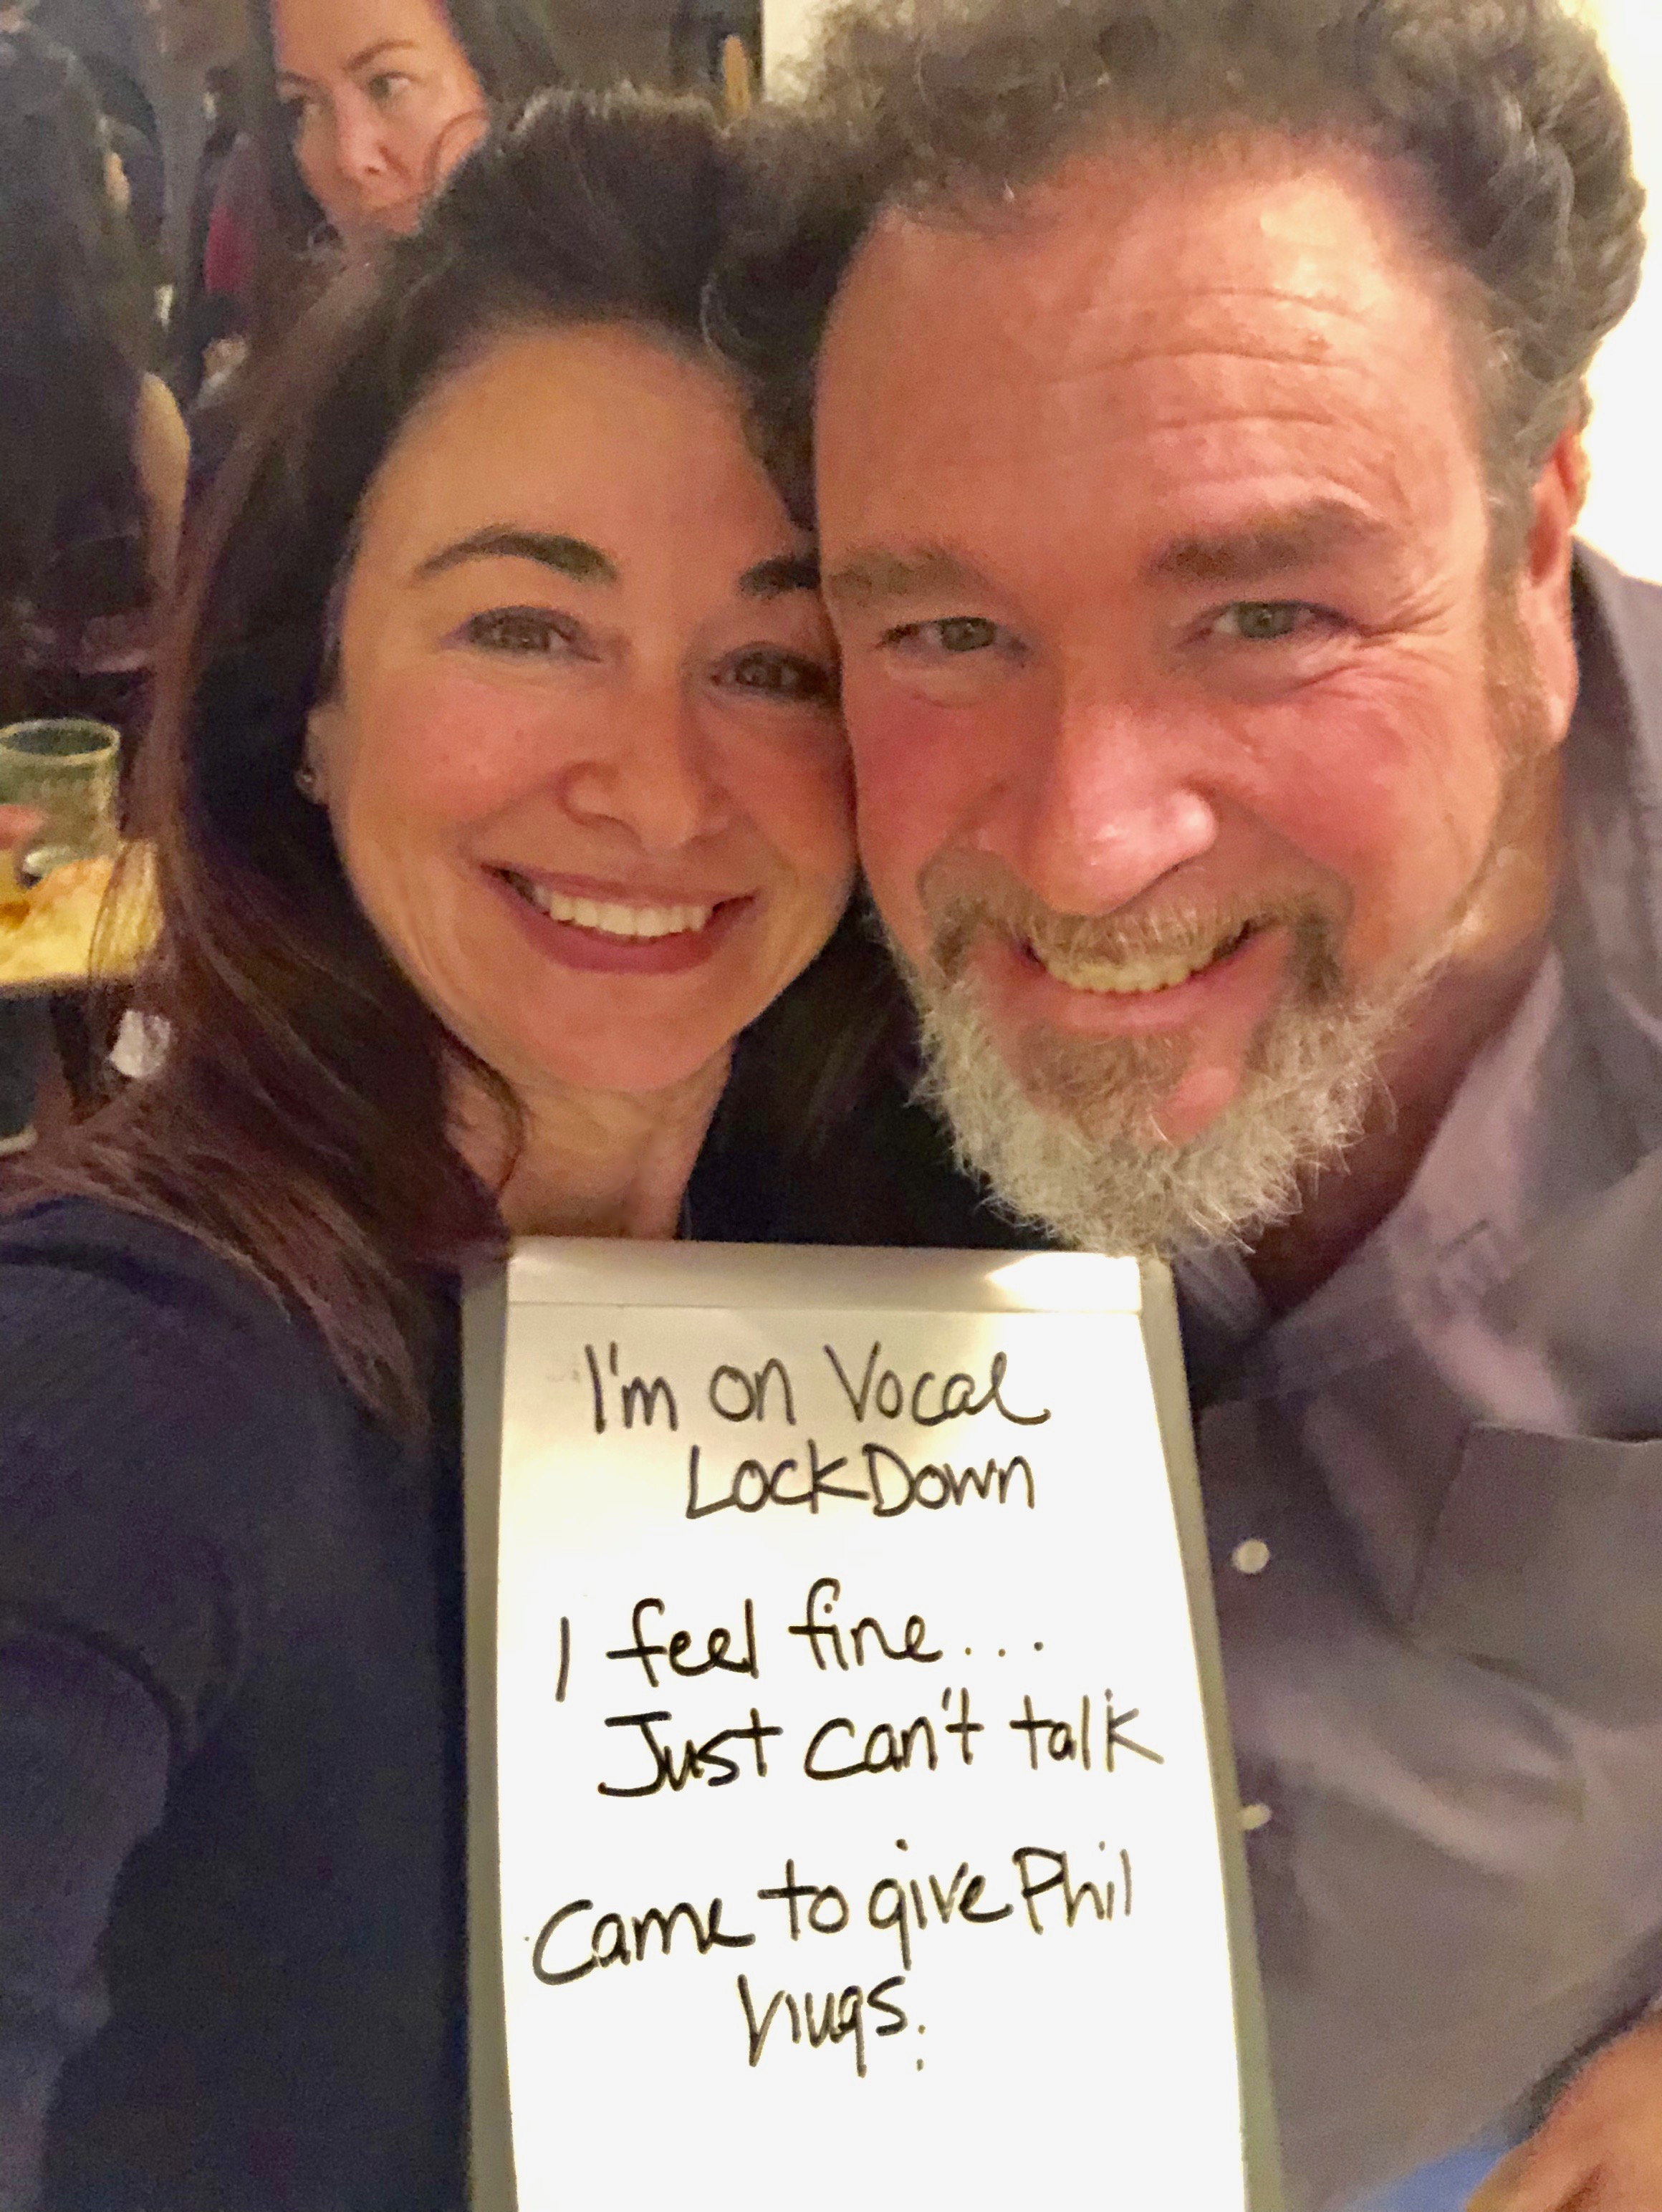 I'm on Vocal
LockDown
I feel fine...
Just can't talk
Came to give Phil
hugs.